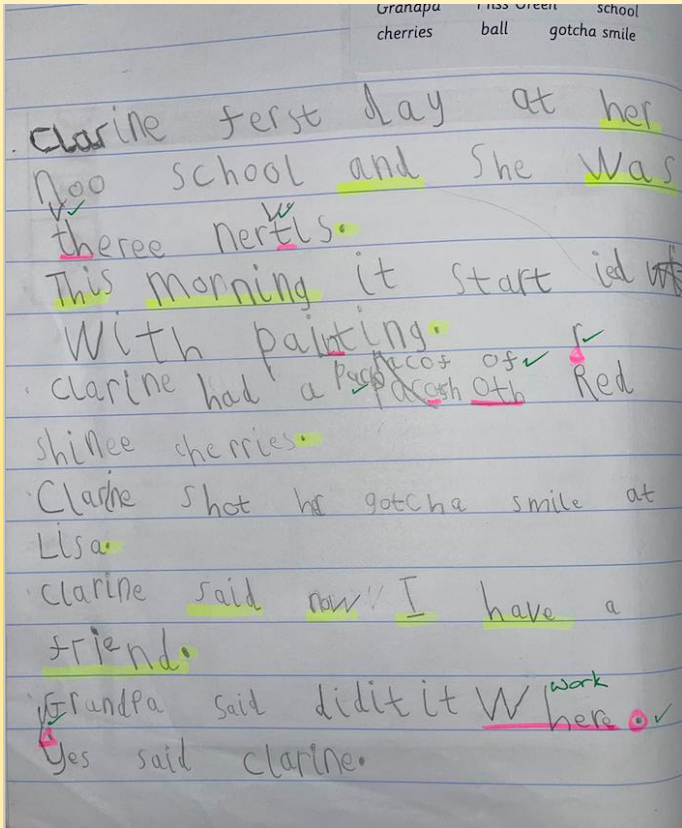 Grandpa Miss Green school
cherries ball gotcha smile
Clarine ferst day at her
noo school and she was
theree nertls.
This morning it start ied
with painting.
Pacof of r
clarine had a pacosh oth Red
shinee cherries.
Clarine shot her gotcha smile at
Lisa.
clarine said now I have a
friend.
work
Grandpa said didit it W here.
Yes said clarine.